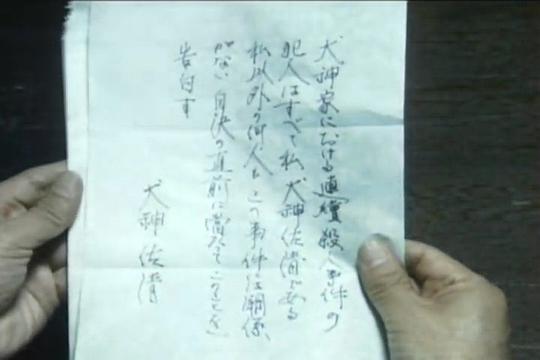 犬神家における連続殺人事件の
犯人はすべて私、犬神佐清である
私以外の何人もこの事件に関係
がない 自決の直前に当りてこのことを
告白す
犬神佐清